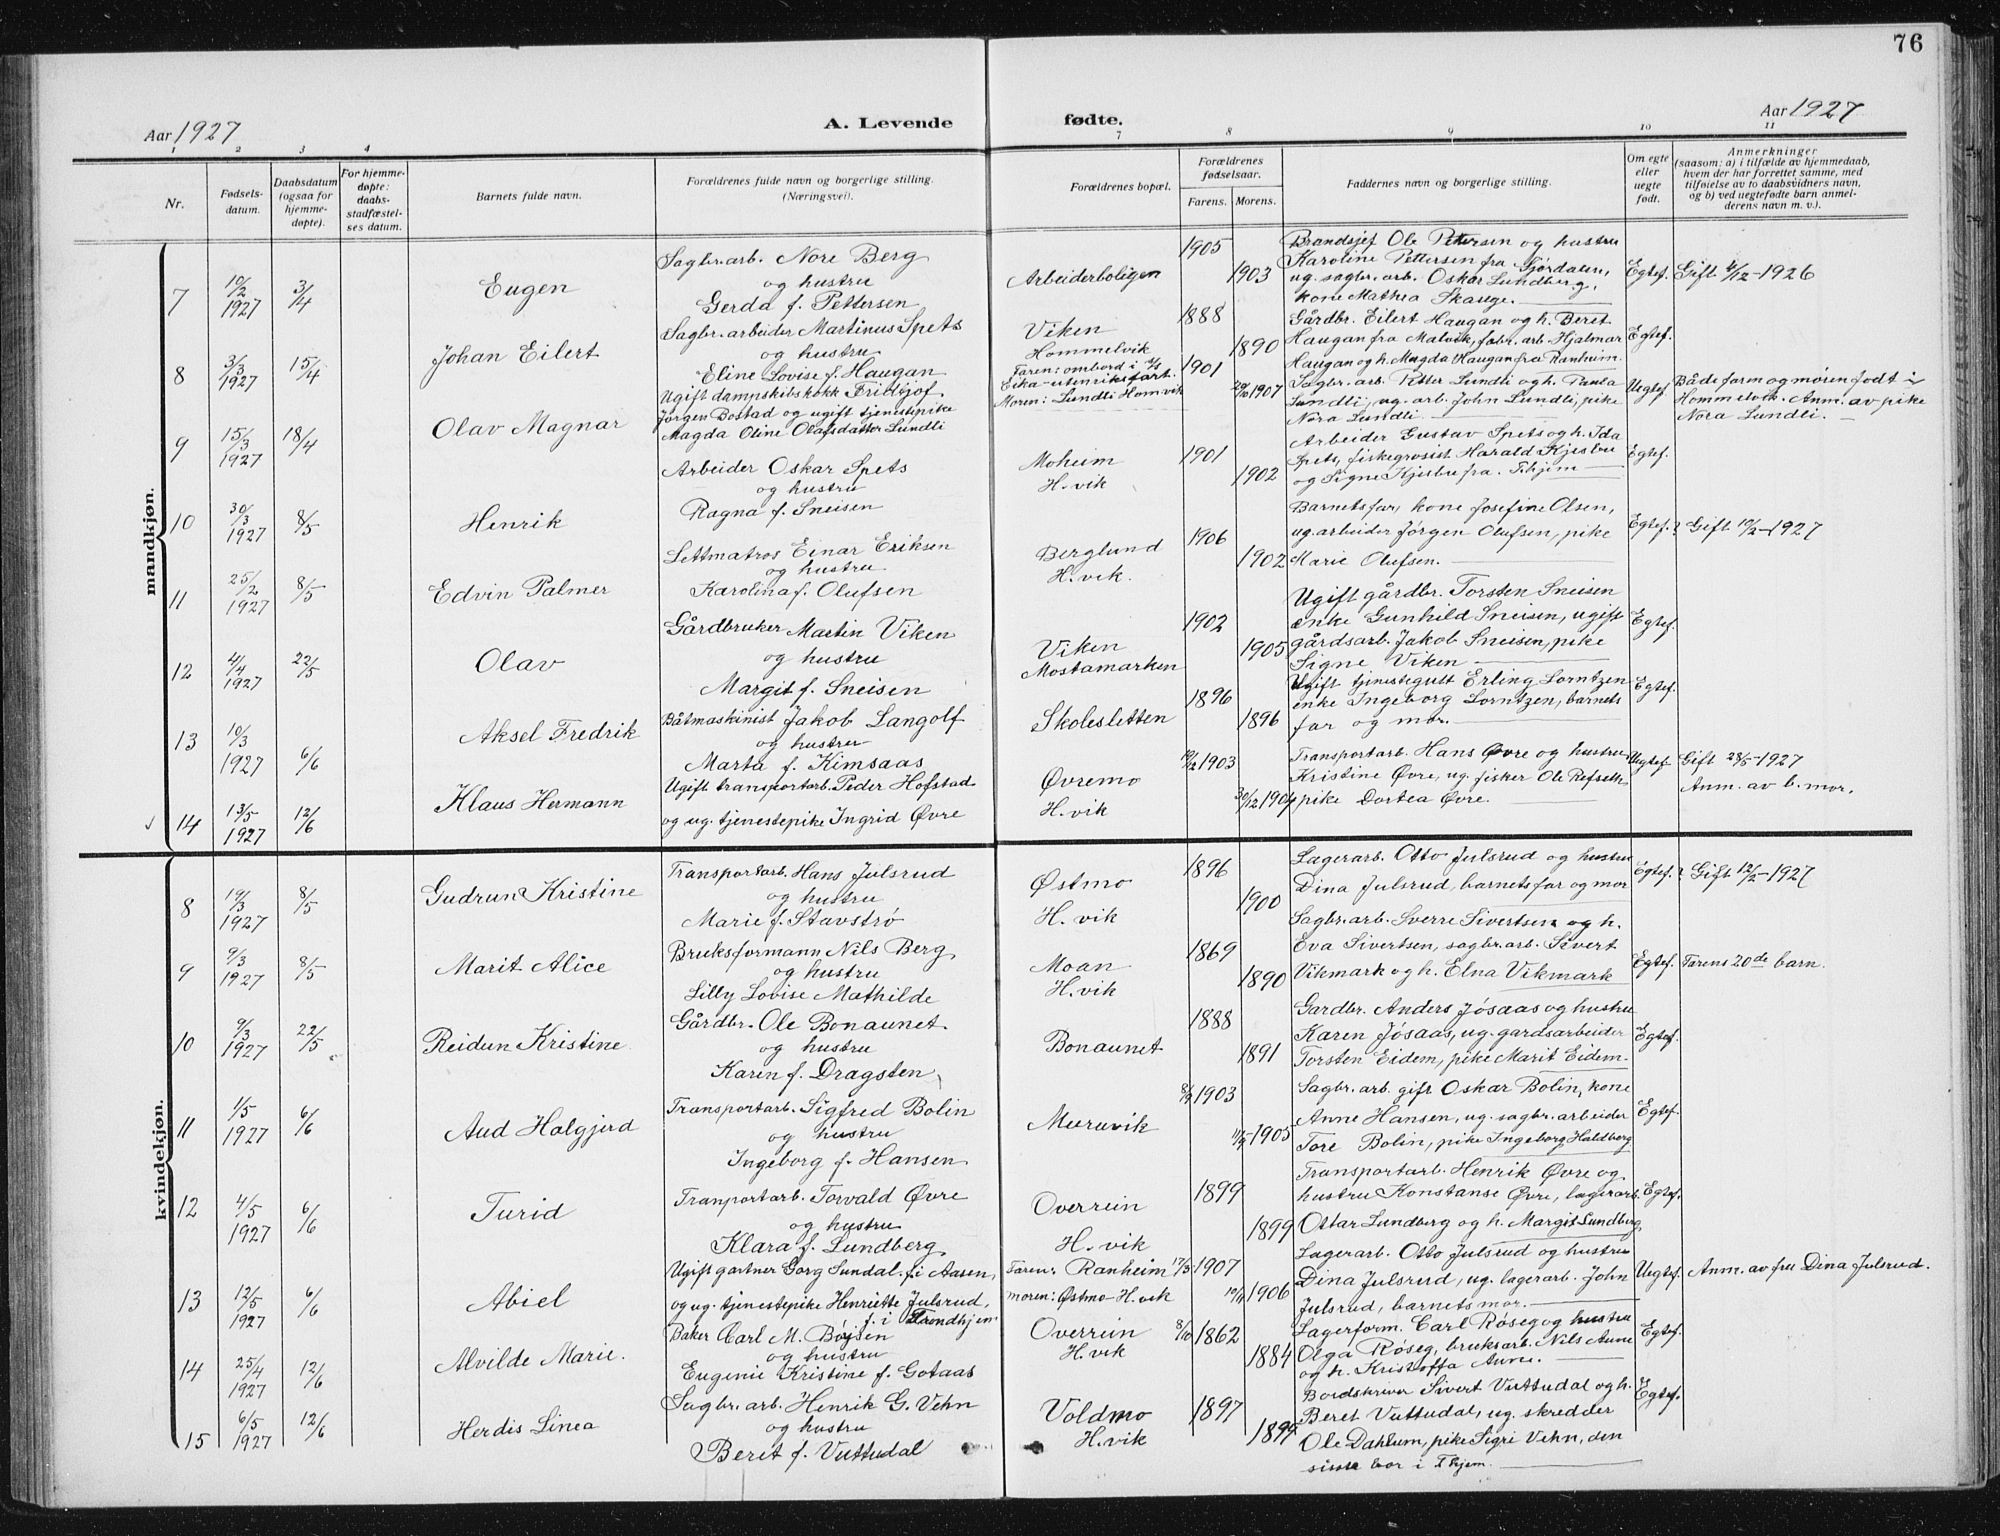 76
Aar 1927
A. Levende fødte.
Aar 1927
1 2 3 4 7 8 9 10 11
Nr.
Fødsels-
datum.
Daabsdatum
(ogsaa for
hjemme-
døpte).
For hjemme-
døpte:
daabs-
stadfæstel-
ses datum.
Barnets fulde navn.
Forældrenes fulde navn og borgerlige stilling.
(Næringsvei).
Forældrenes bopæl.
Forældrenes
fødselsaar.
Farens. Morens.
Faddernes navn og borgerlige stilling.
Om egte
eller
uegte
født.
Anmerkninger
(saasom: a) i tilfælde av hjemmedaab,
hvem der har forrettet samme, med
tilføielse av to daabsvidners navn,
og b) ved uegtefødte barn anmel-
derens navn m. v.).
mandkjøn.
7
10/2
1927
3/4
Eugen
Sagbr.arb. Nore Berg
og hustru
Gerda f. Pettersen
Arbeiderboligen
1905
1903
Brandsjef Ole Pettersen og hustru
Karoline Pettersen fra Gjørdalen,
ug. sagbr. arb. Oskar Lundberg,
kone Mathea Skauge.
Egtef.
Gift 4/12-1926
8
3/3
1927
15/4
Johan Eilert
Sagbr. arbeider Martinus Spets
og hustru
Eline Lovise f. Haugan
Viken
Hommelvik
1888
1890
Gårdbr. Eilert Haugan og h. Beret
Haugan fra Malvik, fabr. arb. Hjalmar
Haugan og h. Magda Haugan fra Ranheim.
Egtef.
9
15/3
1927
18/4
Olav Magnar
Ugift dampskibskokk Fridtjof
Jörgen Bostad og ugift tjenestepike
Magda Oline Olafsdatter Lundli
Faren: ombord i D/S
Eika-utenriksfart.
Moren: Lundli Homvik
1901
20/10 1907
Sagbr. arb. Petter Lundli og h. Paula
Lundli, ug. arb. John Lundli, pike
Nora Lundli
Uegtef.
Både farm og møren født i
Hommelvik. Anm. av pike
Nora Lundli.
10
30/3
1927
8/5
Henrik
Arbeider Oskar Spets
og hustru
Ragna f. Sneisen
Moheim
H.vik
1901
1902
Arbeider Gustav Spets og h. Ida
Spets, fiskegrosist Harald Kjesbu
og Signe Kjesbu fra Thjem
Egtef.
11
25/2
1927
8/5
Edvin Palmer
Lettmatros Einar Eriksen
og hustru
Karolina f. Olufsen
Berglund
H.vik.
1906
1902
Barnets far, kone Josefine Olsen,
ug. arbeider Jörgen Olufsen, pike
Marie Olufsen.
Egtef.
Gift 19/2-1927
12
4/4
1927
22/5
Olav
Gårdbruker Martin Viken
og hustru
Margit f. Sneisen
Viken
Mostamarken
1902
1905
Ugift gårdbr. Torsten Sneisen
enke Gunhild Sneisen, ugift
gårdsarb. Jakob Sneisen, pike
Signe Viken
Egtef.
13
10/3
1927
6/6
Aksel Fredrik
Båtmaskinist Jakob Langolf
og hustru
Marta f. Kimsaas
Skolesletten
1896
1896
Ugift tjenestegutt Erling Lorntzen
enke Ingeborg Lorntzen, barnets
far og mor.
Egtef.
14
13/5
1927
12/6
Klaus Hermann
Ugift transportarb. Peder Hofstad
og ug. tjenestepike Ingrid Øvre
Øvremo
H.vik
1903
30/12 1904
Transportarb. Hans Øvre og hustru
Kristine Øvre, ug. fisker Ole Refseth
pike Dortea Øvre.
Uegtef.
Gift 28/5-1927
Anm. av b. mor.
kvindekjøn.
8
19/3
1927
8/5
Gudrun Kristine
Transportarb. Hans Julsrud
og hustru
Marie f. Stavstrø
Østmo
H.vik
1896
1900
Lagerarb. Otto Julsrud og hustru
Dina Julsrud, barnets far og mor
Egtef.
Gift 12/2-1927
9
9/3
1927
8/5
Marit Alice
Bruksformann Nils Berg
og hustru
Lilly Lovise Mathilde
Moan
H.vik
1869
1890
Sagbr. arb. Sverre Sivertsen og h.
Eva Sivertsen, sagbr. arb. Sivert
Vikmark og h. Elna Vikmark
Egtef.
Farens 20de barn.
10
9/3
1927
22/5
Reidun Kristine
Gårdbr. Ole Bonaunet
og hustru
Karen f. Dragsten
Bonaunet
1888
1891
Gardbr. Anders Jösaas og hustru
Karen Jösaas, ug. gardsarbeider
Torsten Eidem, pike Marit Eidem.
Egtef.
11
1/5
1927
6/6
Aud Halgjerd
Transportarb. Sigfred Bolin
og hustru
Ingeborg f. Hansen
Muruvik
8/9 1903
11/9 1905
Sagbr. arb. gift Oskar Bolin, kone
Anne Hansen, ug. sagbr. arbeider
Tore Bolin, pike Ingeborg Haldberg
Egtef.
12
4/5
1927
6/6
Turid
Tranportarb. Torvald Øvre
og hustru
Klara f. Lundberg
Overrein
H.vik
1899
1899
Transportarb. Henrik Øvre og
hustru Konstanse Øvre, lagerarb.
Ottar Lundberg og h. Margit Lundberg
Egtef.
13
12/5
1927
6/6
Abiel
Ugift gartner Gorg Sundal f. i Aasen,
og ug. tjenestepike Henriette Julsrud,
f. i Trondhjem
Faren: Ranheim
moren: Østmo-H.vik
17/3 1907
1906
Lagerarb. Otto Julsrud og hustru
Dina Julsrud, ug. lagerarb. John
Julsrud, barnets mor.
Uegtef.
Anm. av fru Dina Julsrud.
14
25/4
1927
12/6
Alvilde Marie.
Baker Carl M. Bøjsen
og hustru
Eugenie Kristine f. Gotaas
Overrein
H.vik
8/10 1862
1884
Lagerform. Carl Røseg og hustru
Olga Røseg, bruksarb. Nils Aune
og h. Kristoffa Aune.
Egtef.
15
6/5
1927
12/6
Herdis Linea
Sagbr. arb. Henrik G. Vehn
og hustru
Beret f. Vuttudal
Voldmo
H.vik
1897
1899
Bordskriver Sivert Vuttudal og h.
Beret Vuttudal, ug. skredder
Ole Dahlum, pike Sigri Vehn, den
siste bor i Thjem.
Egtef.